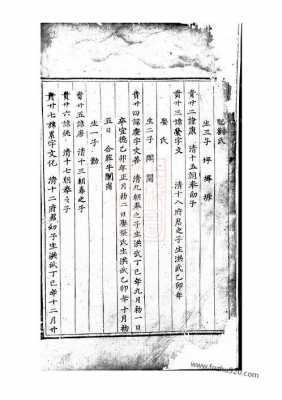 生三子
貴廿二諱康 清十五朝奉幼子
貴廿三諱 字文 清十八府君之子生洪武乙卯年
娶 氏
生二子 開
貴廿四諱慶字文善 清九朝奉之子生洪武丁巳年九月初一日
卒宣德乙卯年正月初二日娶 氏生洪武乙卯年十月初
五日 合葬牛 
生一子 勤
貴廿五諱 清十三朝奉之子
貴廿六諱 清十七朝奉 子
貴廿七諱 字文 清十二府君幼子生洪武丁巳年十二月廿